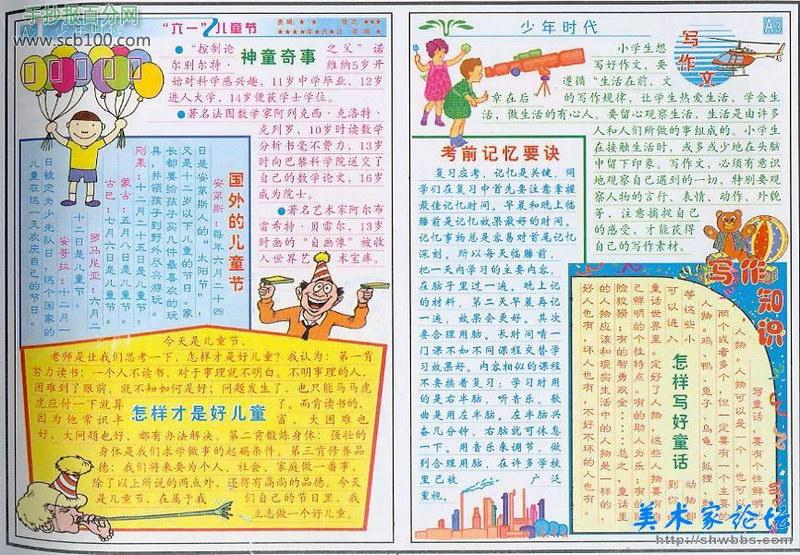 手抄报百分网
www.scb100.com
"六一"儿童节
神童奇事
●"控制论之父"诺
尔别尔特·维纳5岁开
始对科学感兴趣,11岁中学毕业,12岁
进人大学,14岁便获学士学位。
●著名法国数学家阿列克西·克洛特·
克列罗,10岁时读数学
分析书毫不费力,13岁
时向巴黎科学院送交了
自己的数学论文,16岁
成为院士。
●著名艺术家阿尔布
雷希特·贝雷尔,13岁
时画的"自画像"被收
人世界艺术宝库。
国外的儿童节
安第斯:每年六月二十四
日是安第斯人的"太阳节"
是十二岁以下儿童的节日。家
长都要给孩子买几件最喜欢的玩
具,并领孩子到野外尽兴游玩。
刚果:十二月二十五日是儿童节。
蒙古:五月八日是儿童节。
古巴:七月六日是儿童节。
罗马尼亚:六月二
十二日是儿童节。
安哥拉:十二月一
日被定为少先队日,这个国家的
儿童在这一天欢庆自己的节日。
怎样才是好儿童
今天是儿童节,
老师是让我们思考一下,怎样才是好儿童?我认为:第一肯
努力读书:一个人不读书,对于事理就不明白。不明事理的人,
困难到了眼前,就不知如何是好;问题发生了,也只能马马虎
虎应付一下就算了。而肯读书的,
因为他常识丰富,大困难也
好,大问题也好,都有办法解决。第二肯锻炼身体:强壮的
身体是我们求学做事的起码条件。第三肯修养品
德:我们将来要为个人、社会、家庭做一番事,
除了以上所说的两点外,还得有高尚的品德。今天
是儿童节,在属于我们自己的节日里,我
立志做一个好儿童。
少年时代
A3
写作文
小学生想
写好作文,要
遵循"生活在前,文
章在后的写作规律,让学生热爱生活,学会生
活,做生活的有心人。要留心观察生活,生活是由许多
人和人们所做的事组成的。小学生
在接触生活时,或多或少地在头脑
中留下印象。写作文,必须有意识
地观察自己遇到的一切,特别要观
察人物的言行、表情、动作、外貌
等,注意捕捉自己
的感受,才能获得
自己的写作素材。
考前记忆要诀
复习应考,记忆是关键,同
学们在复习中首先要注意掌握
最佳记忆时间。早晨和晚上临
睡前是记忆效果最好的时间。
记忆事物总是容易对首尾记忆
深刻,所以每天临睡前,
把一天内学习的主要内容,
在脑子里过一遍。晚上记
的材料,第二天早晨再记
一遍,效果会更好。其次
要合理用脑。长时间啃一
门课不如不同课程交替学
习效果好。内容相似的课程
不要挨着复习:学习时用
的是右半脑,听音乐、歌
曲是用左半脑。左半脑兴
奋几分钟,右脑就可休息
一下。用音乐来调节,做
到合理用脑,在许多学校
里已被广泛
重视。
写作知识
怎样写好童话
写童话,要有个性鲜明
人物。人物可以是一个,也可以
两个或者多个,但要有一个主要的
人物。鸡、鸭、兔子、乌龟、狐狸
等这些小动物都
可以进入到你
童话世界里。定好了人物,这些人物要有
已鲜明的个性特点:有的助人为乐;有的
险狡猾;有的智勇双全……总之,童话里
的人物应该和现实生活中的人物是一样的,
好人也有,坏人也有,不好不坏的人也有。
美术家论坛
http://shwbbs.com